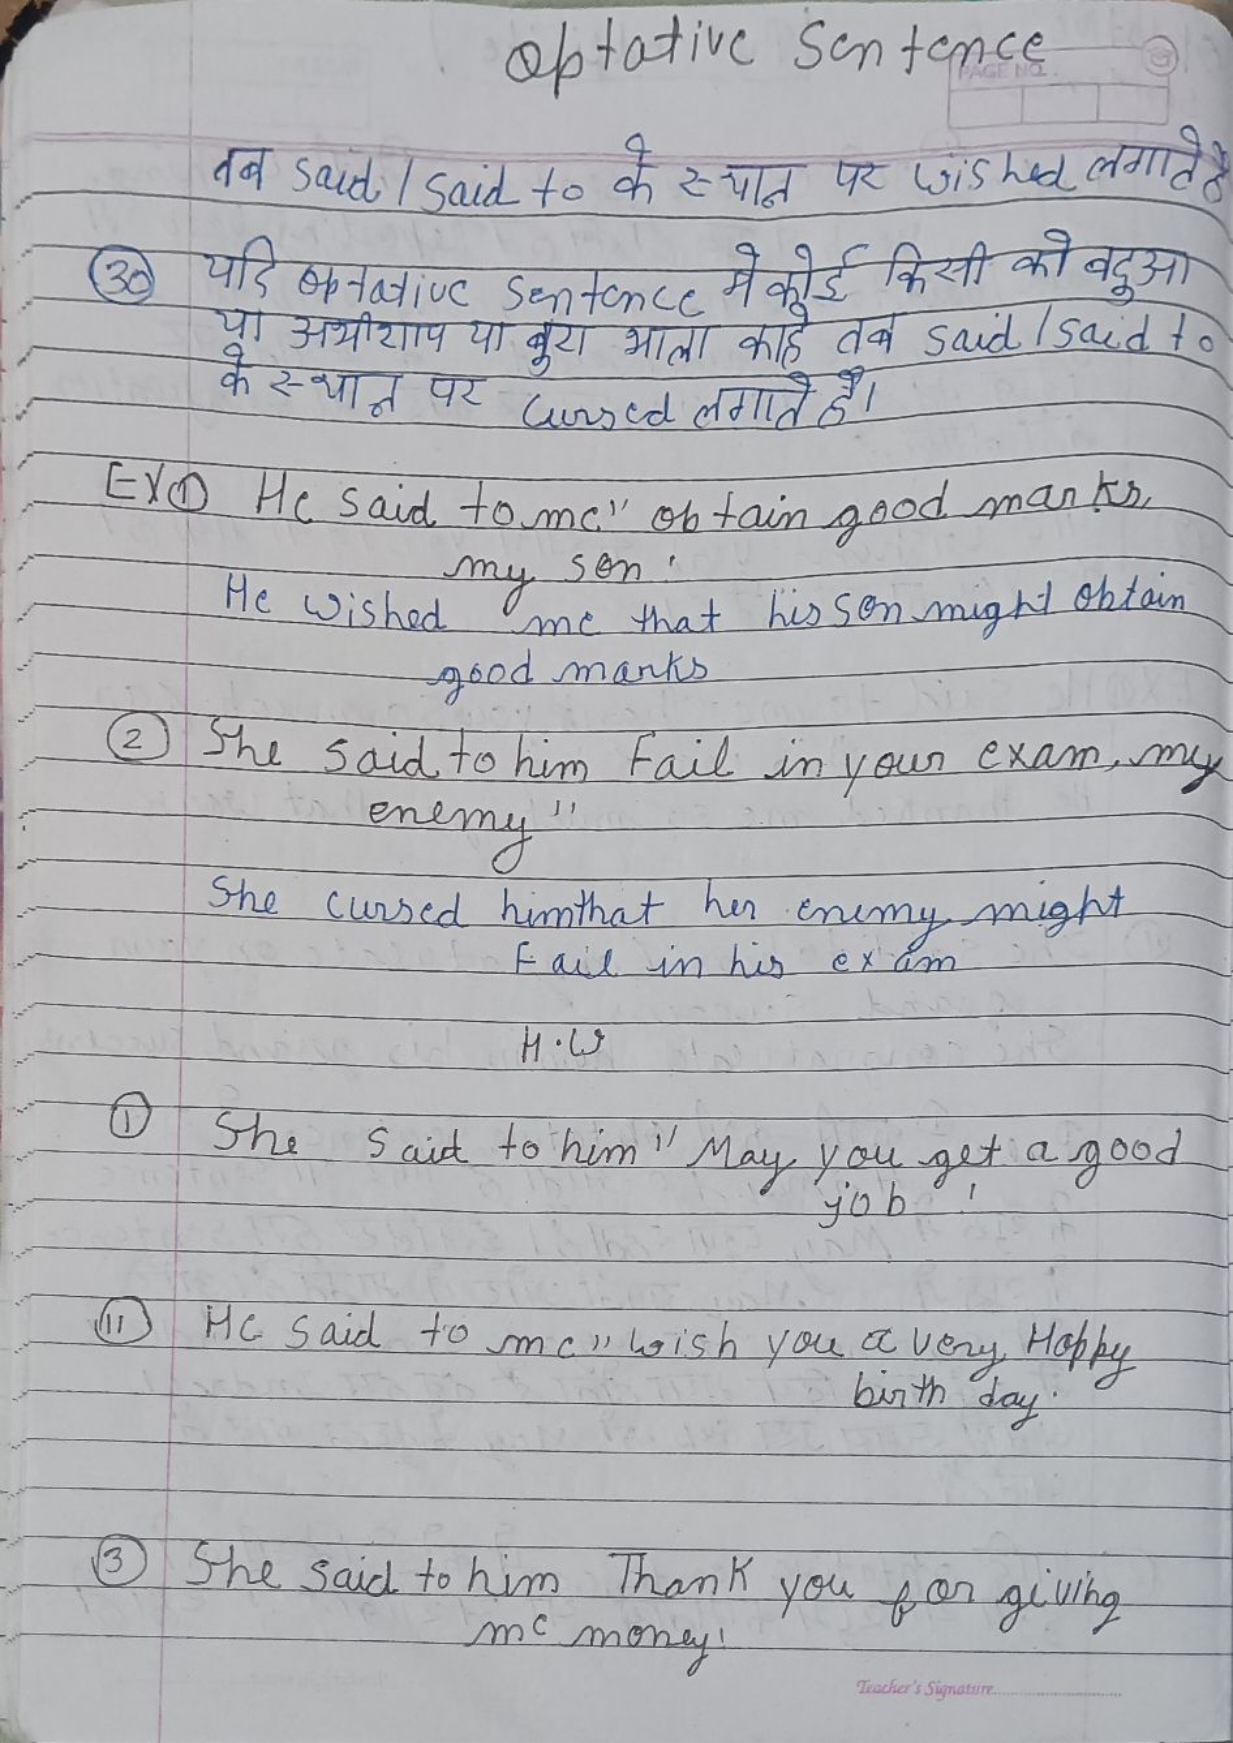 Optative Sentence
PAGE NO.
तब said / said to के स्थान पर wished लगाते है
(30) यदि optative sentence मे कोई किसी को बद्दुआ
या अभीशाप या बुरा भाला काहे तब said / said to
के स्थान पर cursed लगाते है।
EX ① He said to me" obtain good marks,
my son'
He wished me that his son might obtain
good marks
② She said to him Fail in your exam, my
enemy"
She cursed himthat her enemy might
Fail in his exam
H.W
① She said to him" May you get a good
job !
(11) He said to me" wish you a very Happy
birth day.
③ She said to him Thank you for giving
me money!
Teacher's Signature